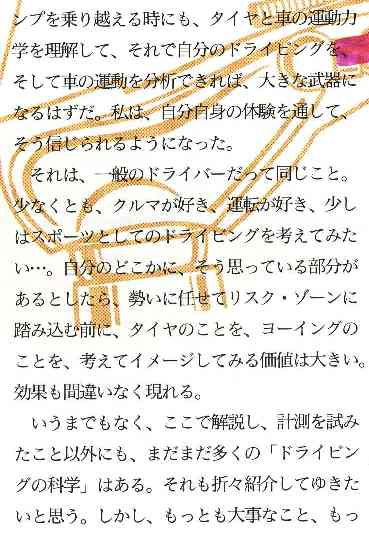 ンプを乗り越える時にも、タイヤと車の運動力
学を理解して、それで自分のドライビングを、
そして車の運動を分析できれば、大きな武器に
なるはずだ。私は、自分自身の体験を通して、
そう信じられるようになった。
それは、一般のドライバーだって同じこと。
少なくとも、クルマが好き、運転が好き、少し
はスポーツとしてのドライビングを考えてみた
い…。自分のどこかに、そう思っている部分が
あるとしたら、勢いに任せてリスク・ゾーンに
踏み込む前に、タイヤのことを、ヨーイングの
ことを、考えてイメージしてみる価値は大きい。
効果も間違いなく現れる。
いうまでもなく、ここで解説し、計測を試み
たこと以外にも、まだまだ多くの「ドライビン
グの科学」はある。それも折々紹介してゆきた
いと思う。しかし、もっとも大事なこと、もっ